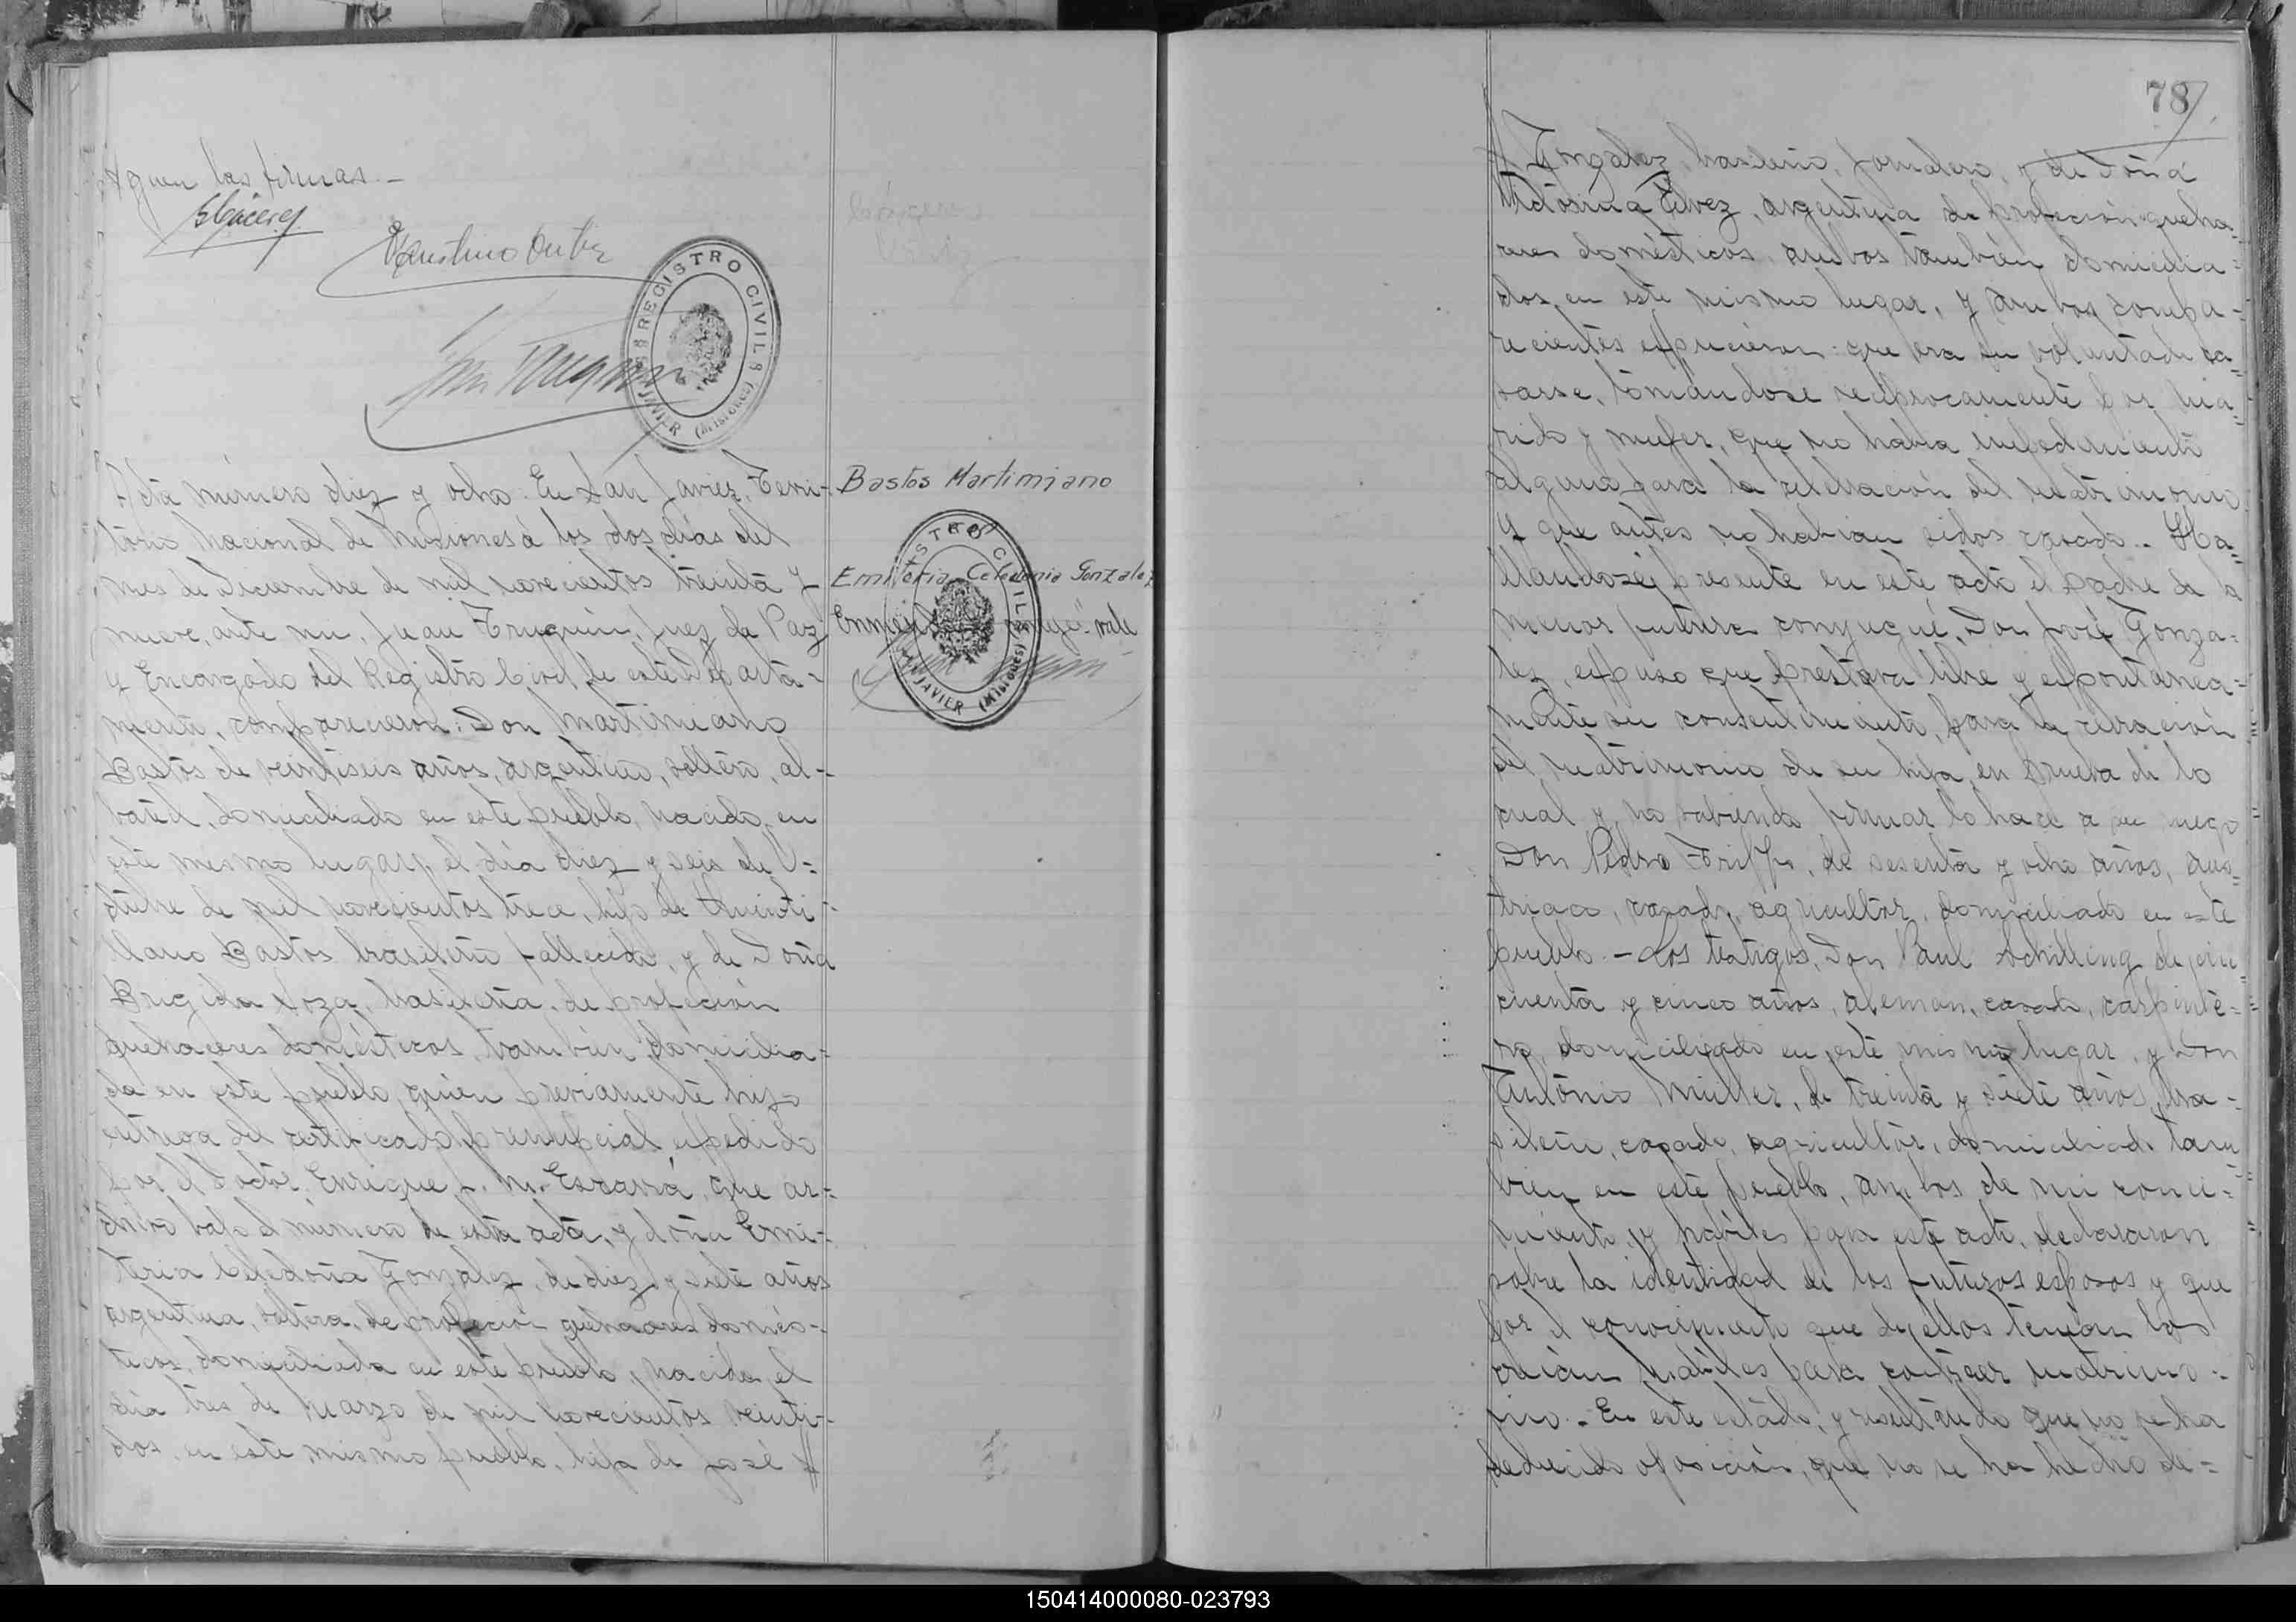 Siguen las firmas.-
Faustino Ortiz
REGISTRO CIVIL
JAVIER (Misiones)
Acta número diez y ocho: En San Javier, Terri-
torio Nacional de Misiones á los dos días del
mes de Diciembre de mil novecientos treinta y
nueve, ante mi, Juan Truguin, Juez de Paz
y Encargado del Registro Civil de este Departa-
mento, comparecieron: Don Martimiano
Bastos de veintiseis años, argentino, soltero, al-
bañil, domiciliado en este pueblo, nacido en
este mismo lugar, el día diez y seis de O-
ctubre de mil novecientos trece, hijo de
Bastos brasileño fallecido, y de Doña
Brigida Loza, brasileña, de profeción
quehaceres domésticos, también domicilia-
da en este pueblo, quien previamente hizo
entrega del certificado prenupcial expedido
por el Doctor Enrique J. M. Escarrá, que ar-
chivo bajo el número de esta acta, y doña Emi-
teria Celedoña González, de diez y siete años
argentina, soltera, de profeción quehaceres domés-
ticos, domiciliada en este pueblo, nacida el
día tres de Marzo de mil novecientos veinti-
dos, en este mismo pueblo, hija de José
Bastos Martimiano
REGISTRO CIVIL
Emiteria Celedonia Gonzalez
vale
JAVIER (Misiones)
78
González, brasileño, jornalero, y de Doña
Victorina argentina de profeción queha-
ceres domésticos, ambos también domicilia-
dos en este mismo lugar, y ambos compa-
recientes expucieron: que era su voluntad ca-
sarse, tomandose reciprocamente por ma-
rido y mujer, que no había impedimento
alguno para la celebración del matrimonio
y que antes no habían sidos casado.- Ha-
llandose presente en este acto el padre de la
menor futura conyugue, Don José Gonza-
lez, expuso que prestava libre y espontanea-
mente su consentimiento, para la
del matrimonio de su hija, en prueba de lo
cual y no sabiendo firmar lo hace a su ruego
Don Pedro de sesenta y ocho años, aus-
triaco, casado, agricultor, domiciliado en este
pueblo.- Los testigos, Don Paul Schilling de cin-
cuenta y cinco años, aleman, casado, carpinte-
ro, domiciliado en este mismo lugar, y Don
Antonio Müller, de treinta y siete años, bra-
sileño, casado, agricultor, domiciliado tam-
bien en este pueblo, ambos de mi conoci-
miento y habiles para este acto, declararon
sobre la identidad de los futuros esposos y que
por el conocimiento que de ellos tenían los
creían habiles para contraer matrimo-
nio.- En este estado, y resultando que no se ha
deducido oposición, que no se ha hecho de-
150414000080-023793